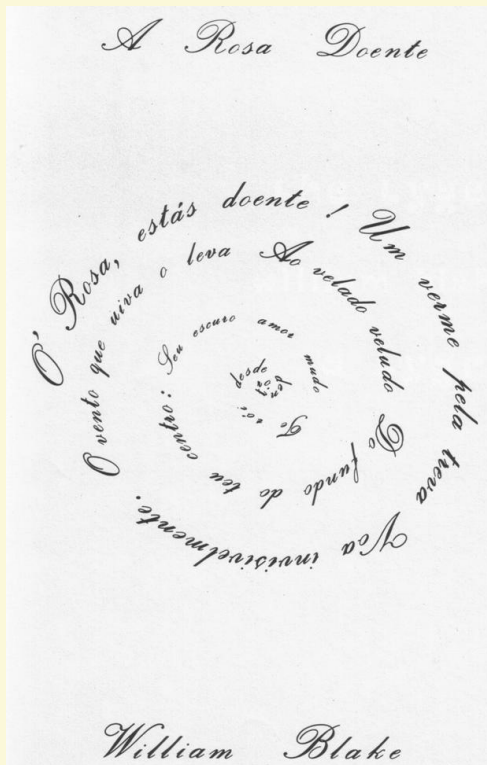 A Rosa Doente
Ó Rosa, estás doente! Um verme pela treva Voa invisivelmente. O vento que uiva o leva Ao velado veludo Do fundo do teu centro: Seu escuro amor mudo Te rói desde dentro.
William Blake